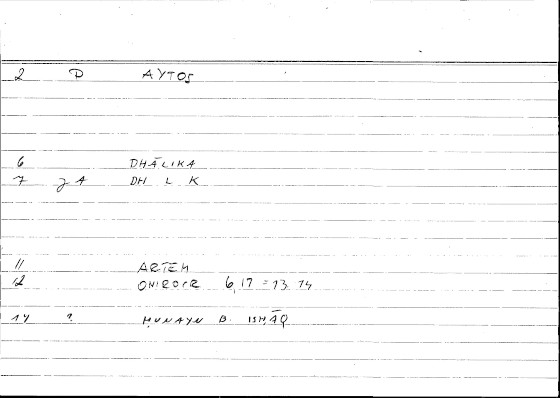 2 P AYTOS
6 DHĀLIKA
7 JA DH L K
11 ARTEM
12 ONIROCR 6,17 = 13 14
14 ? ḤUNAYN B. ISḤĀQ